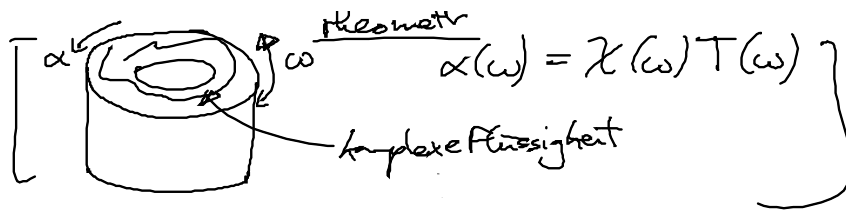 Rheometr
α ω α(ω) = χ(ω) T(ω)
komplexe Flüssigkeit